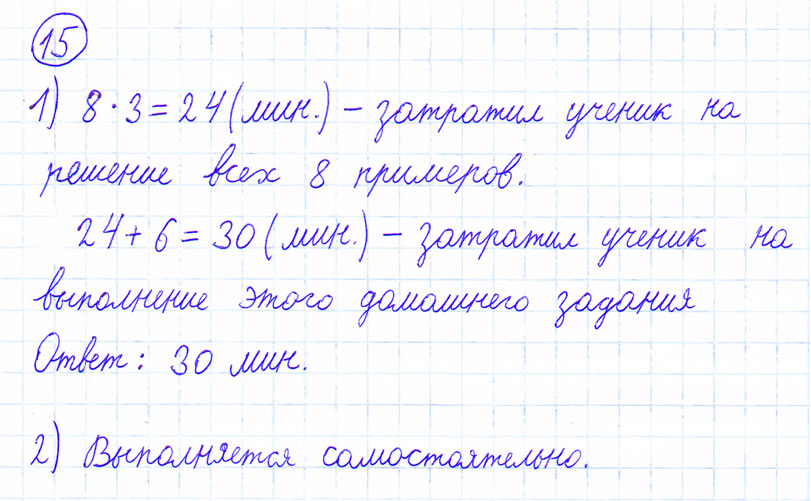 15
1) 8 · 3 = 24 (мин.) – затратил ученик на
решение всех 8 примеров.
24 + 6 = 30 (мин.) – затратил ученик на
выполнение этого домашнего задания
Ответ: 30 мин.
2) Выполняется самостоятельно.